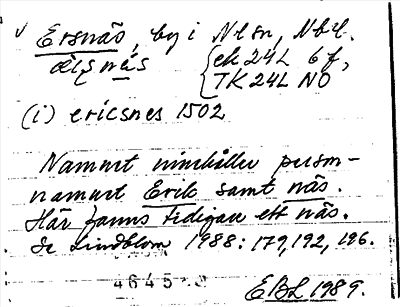 ✓ Ersnäs, by i Nlsn, Nbtl.
æⱡʂnäs {ek 24L 6f,
TK 24L NO
(i) ericsnes 1502
Namnet innehåller person-
namnet Erik samt näs.
Här fanns tidigare ett näs.
Se Lindblom 1988: 179, 192, 196.
4645
EBL 1989.